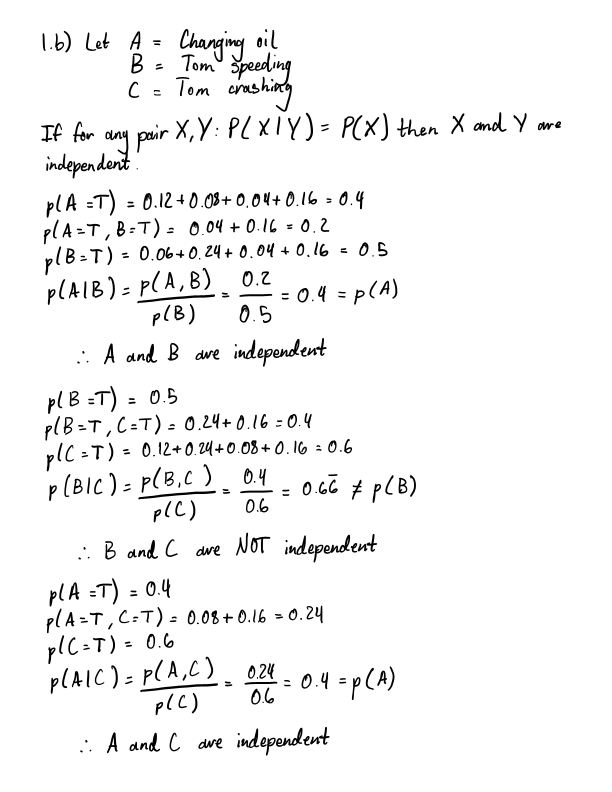 1.b) Let A = Changing oil
B = Tom speeding
C = Tom crashing
If for any pair X, Y: P(X|Y) = P(X) then X and Y are
independent.
p(A=T) = 0.12+0.08+0.04+0.16 = 0.4
p(A=T, B=T) = 0.04 + 0.16 = 0.2
p(B=T) = 0.06+0.24+0.04+0.16 = 0.5
p(A|B) = p(A,B)/p(B) = 0.2/0.5 = 0.4 = p(A)
∴ A and B are independent
p(B=T) = 0.5
p(B=T, C=T) = 0.24+0.16 = 0.4
p(C=T) = 0.12+0.24+0.08+0.16 = 0.6
p(B|C) = p(B,C)/p(C) = 0.4/0.6 = 0.66̄ ≠ p(B)
∴ B and C are NOT independent
p(A=T) = 0.4
p(A=T, C=T) = 0.08+0.16 = 0.24
p(C=T) = 0.6
p(A|C) = p(A,C)/p(C) = 0.24/0.6 = 0.4 = p(A)
∴ A and C are independent